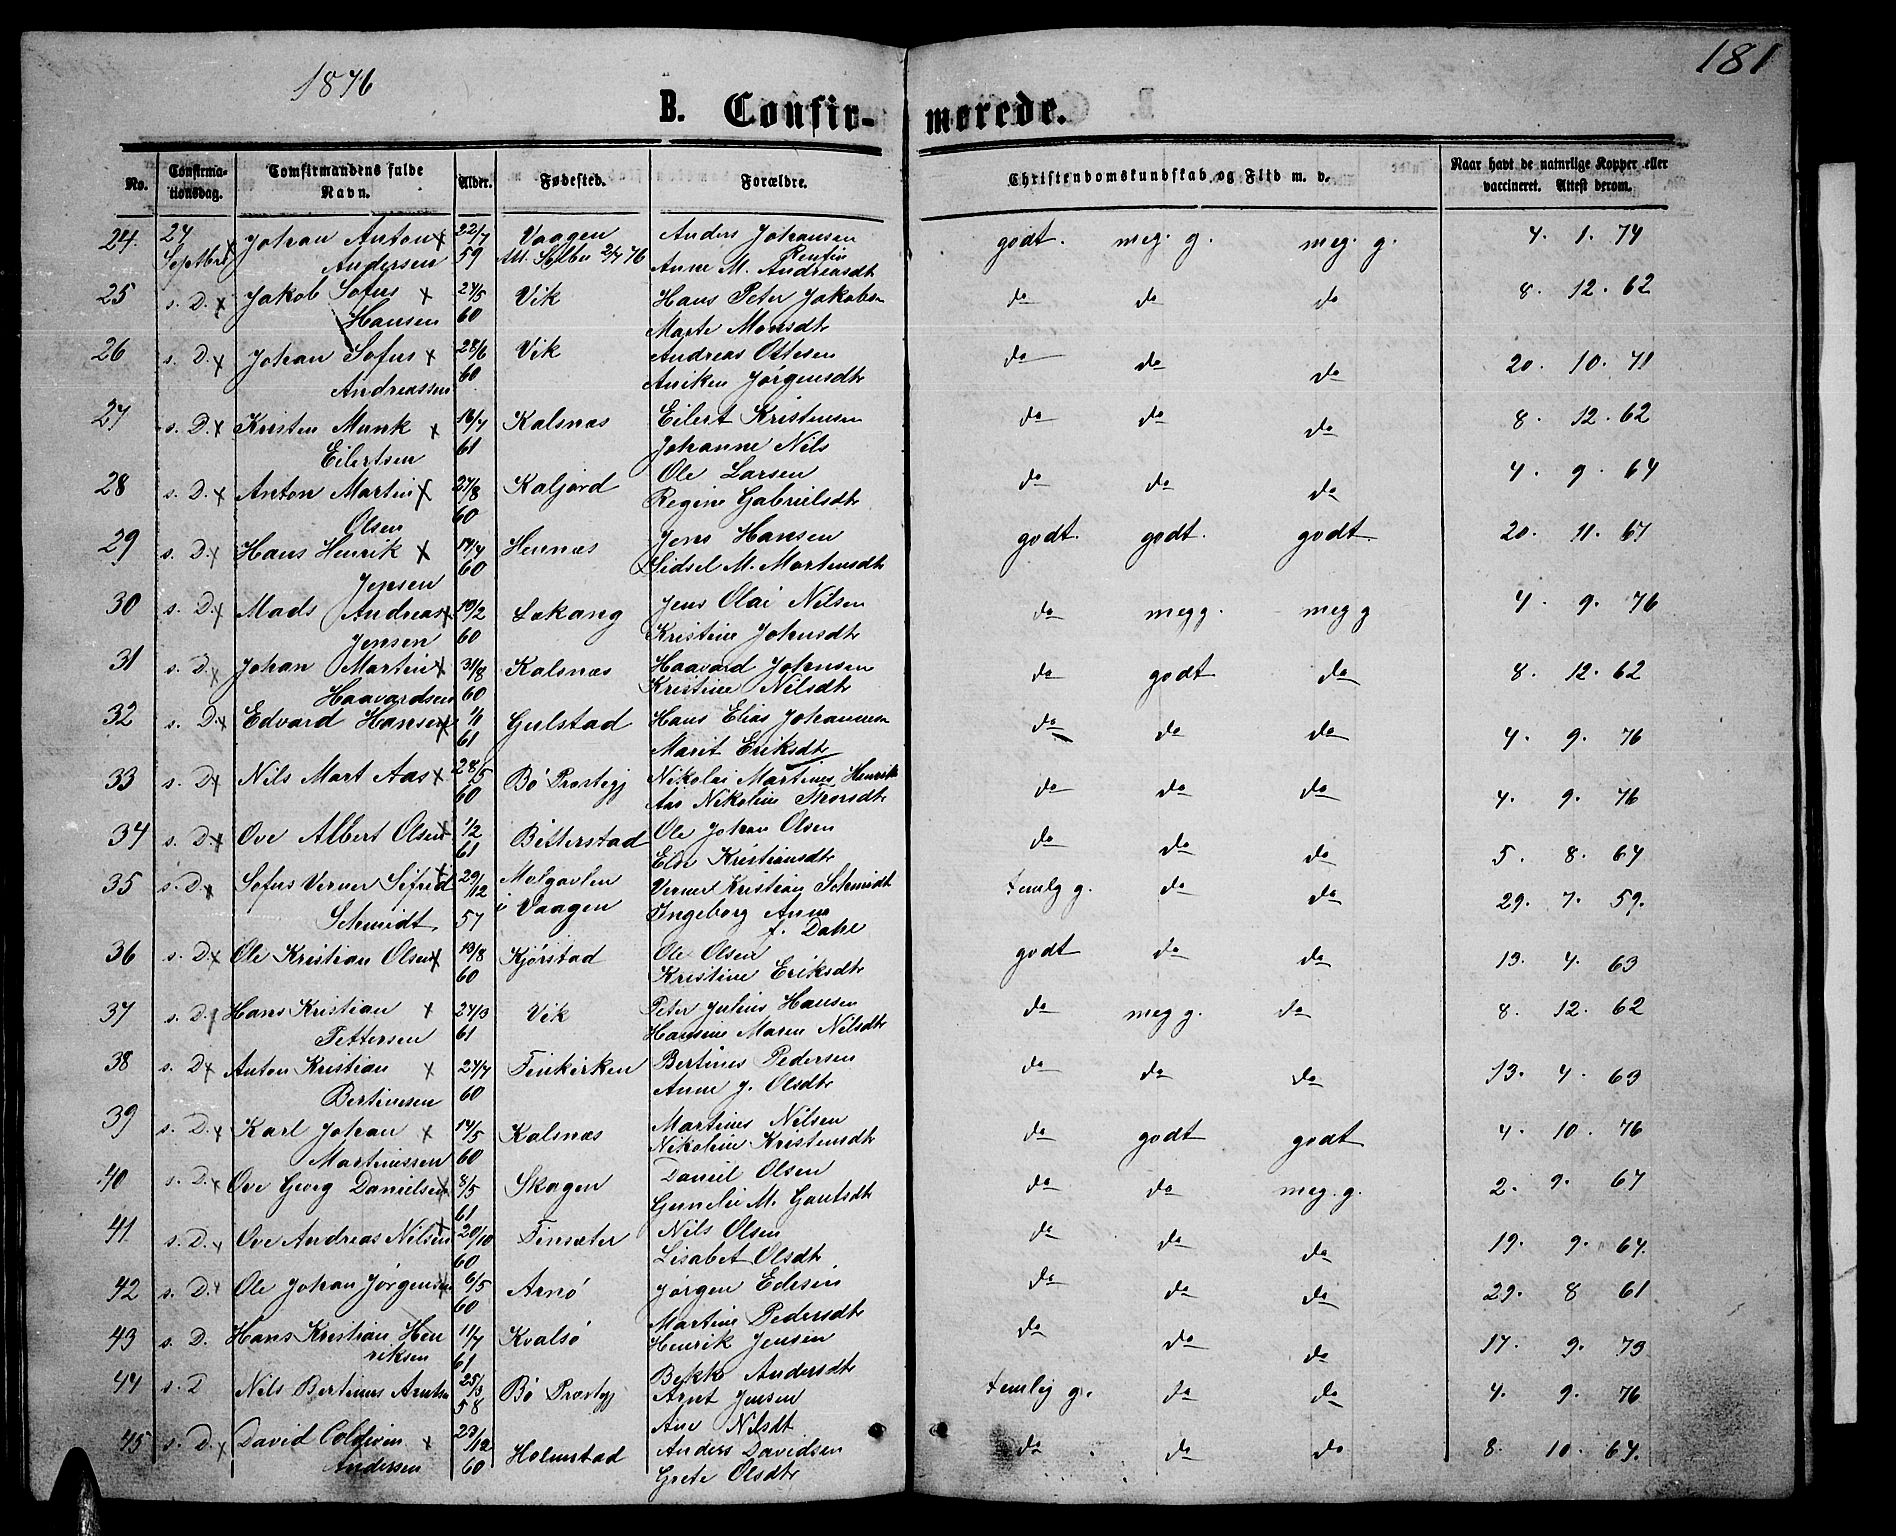 181
1876
B. Confir- merede.
No. Confirmationsdag. Comfirmandens fulde Navn. Alder. Fødested. Forældre. Christendomskundskab og Flid m. v. Naar havt de naturlige Kopper eller vaccineret. Attest derom.
24. 24 Johan Anton 22/7 Vaagen Anders Johansen godt. meg. g. meg. g. 4. 1. 74
Septbr Andersen 59 Att. 76 Anne M. Andreasdt
25 s. D. Jakob Sofus 24/5 Vik Hans Peter Jakobsen do do do 8. 12. 62
Hansen 60 Marte Monsdt
26 s. D. Johan Sofus 28/6 Vik Andreas Ottesen do do do 20. 10. 71
Andreassen 60 Aniken Jørgensdt
27 s. D. Kristen Munk 16/7 Kalsnæs Eilert Kristensen do do do 8. 12. 62
Eilertsen 61 Johanne Nils
28 s. D. Anton Martin 27/8 Kaljord Ole Larsen do do do 4. 9. 64
Olsen 60 Regine Gabrielsdt
29 s. D. Hans Henrik 14/4 Hennæs Jens Hansen godt. godt. godt 20. 11. 67
Jensen 60 Sidsel M. Martensdt
30 s. D. Mads Andreas 19/2 Lokang Jens Olai Nilsen do meg g. meg g 4. 9. 76
Jensen 60 Kristine Johnsdt
31 s. D. Johan Martin 31/8 Kalsnæs Haavard Johnsen do godt do 8. 12. 62
Haavardsen 60 Kristine Nilsdt
32 s. D. Edvard Hansen 1/1 Gulstad Hans Elias Johannesen do do do 4. 9. 76
61 Marit Eriksdt
33 s. D. Nils Mart Aas 28/5 Bø Prestegj Nikolai Martines Henrik do do do 4. 9. 76
60 Aas Nikoline Tronsdt
34 s. D. Ove Albert Olsen 1/2 Bitterstad Ole Johan Olsen do do do 5. 8. 64
61 Else Kristiansdt
35 s. D. Sofus Verner Sifrid 29/12 Molgavlen Verner Kristian Schmidt temlg g. do do 29. 7. 59.
Schmidt 57 i Vaagen Ingeborg Anna f. Dahl
36 s. D. Ole Kristian Olsen 19/8 Kjørstad Ole Olsen godt do do 13. 4. 63
60 Kristine Eriksdt
37 s. D. Hans Kristian 24/3 Vik Peter Julius Hansen do meg g. do 8. 12. 62
Pettersen 61 Hansine Maren Nilsdt
38 s. D. Anton Kristian 24/7 Finkirken Bertines Pedersen do do do 13. 4. 63
Bertinesen 60 Anne J. Olsdt
39 s. D. Karl Johan 14/5 Kalsnæs Martines Nilsen do godt godt 4. 10. 76
Martinussen 60 Nikoline Kristensdt
40 s. D. Ove Georg Danielsen 8/5 Skagen Daniel Olsen do do meg. g. 2. 9. 67
61 Gunelie M. Gautsdt
41 s. D. Ove Andreas Nilsen 20/10 Finsæter Nils Olsen do do do 19. 9. 64.
60 Lisabet Olsdt
42 s. D. Ole Johan Jørgensen 6/5 Arnø Jørgen Edisen do do do 29. 8 61
60 Martine Pedersdt
43 s. D. Hans Kristian Hen 11/7 Kvalsø Henrik Jensen do do do 17. 9. 73
riksen 61 Andersdt
44 s. D Nils Bertines Arntsn 25/3 Bø Præstgj Arnt Jensen temlig g. do do 4. 9. 76
58 Ane Nilsdt
45 s. D. David Coldevin 23/12 Holmstad Anders Davidsen do do do 8. 10. 64.
Andersen 60 Grete Olsdt